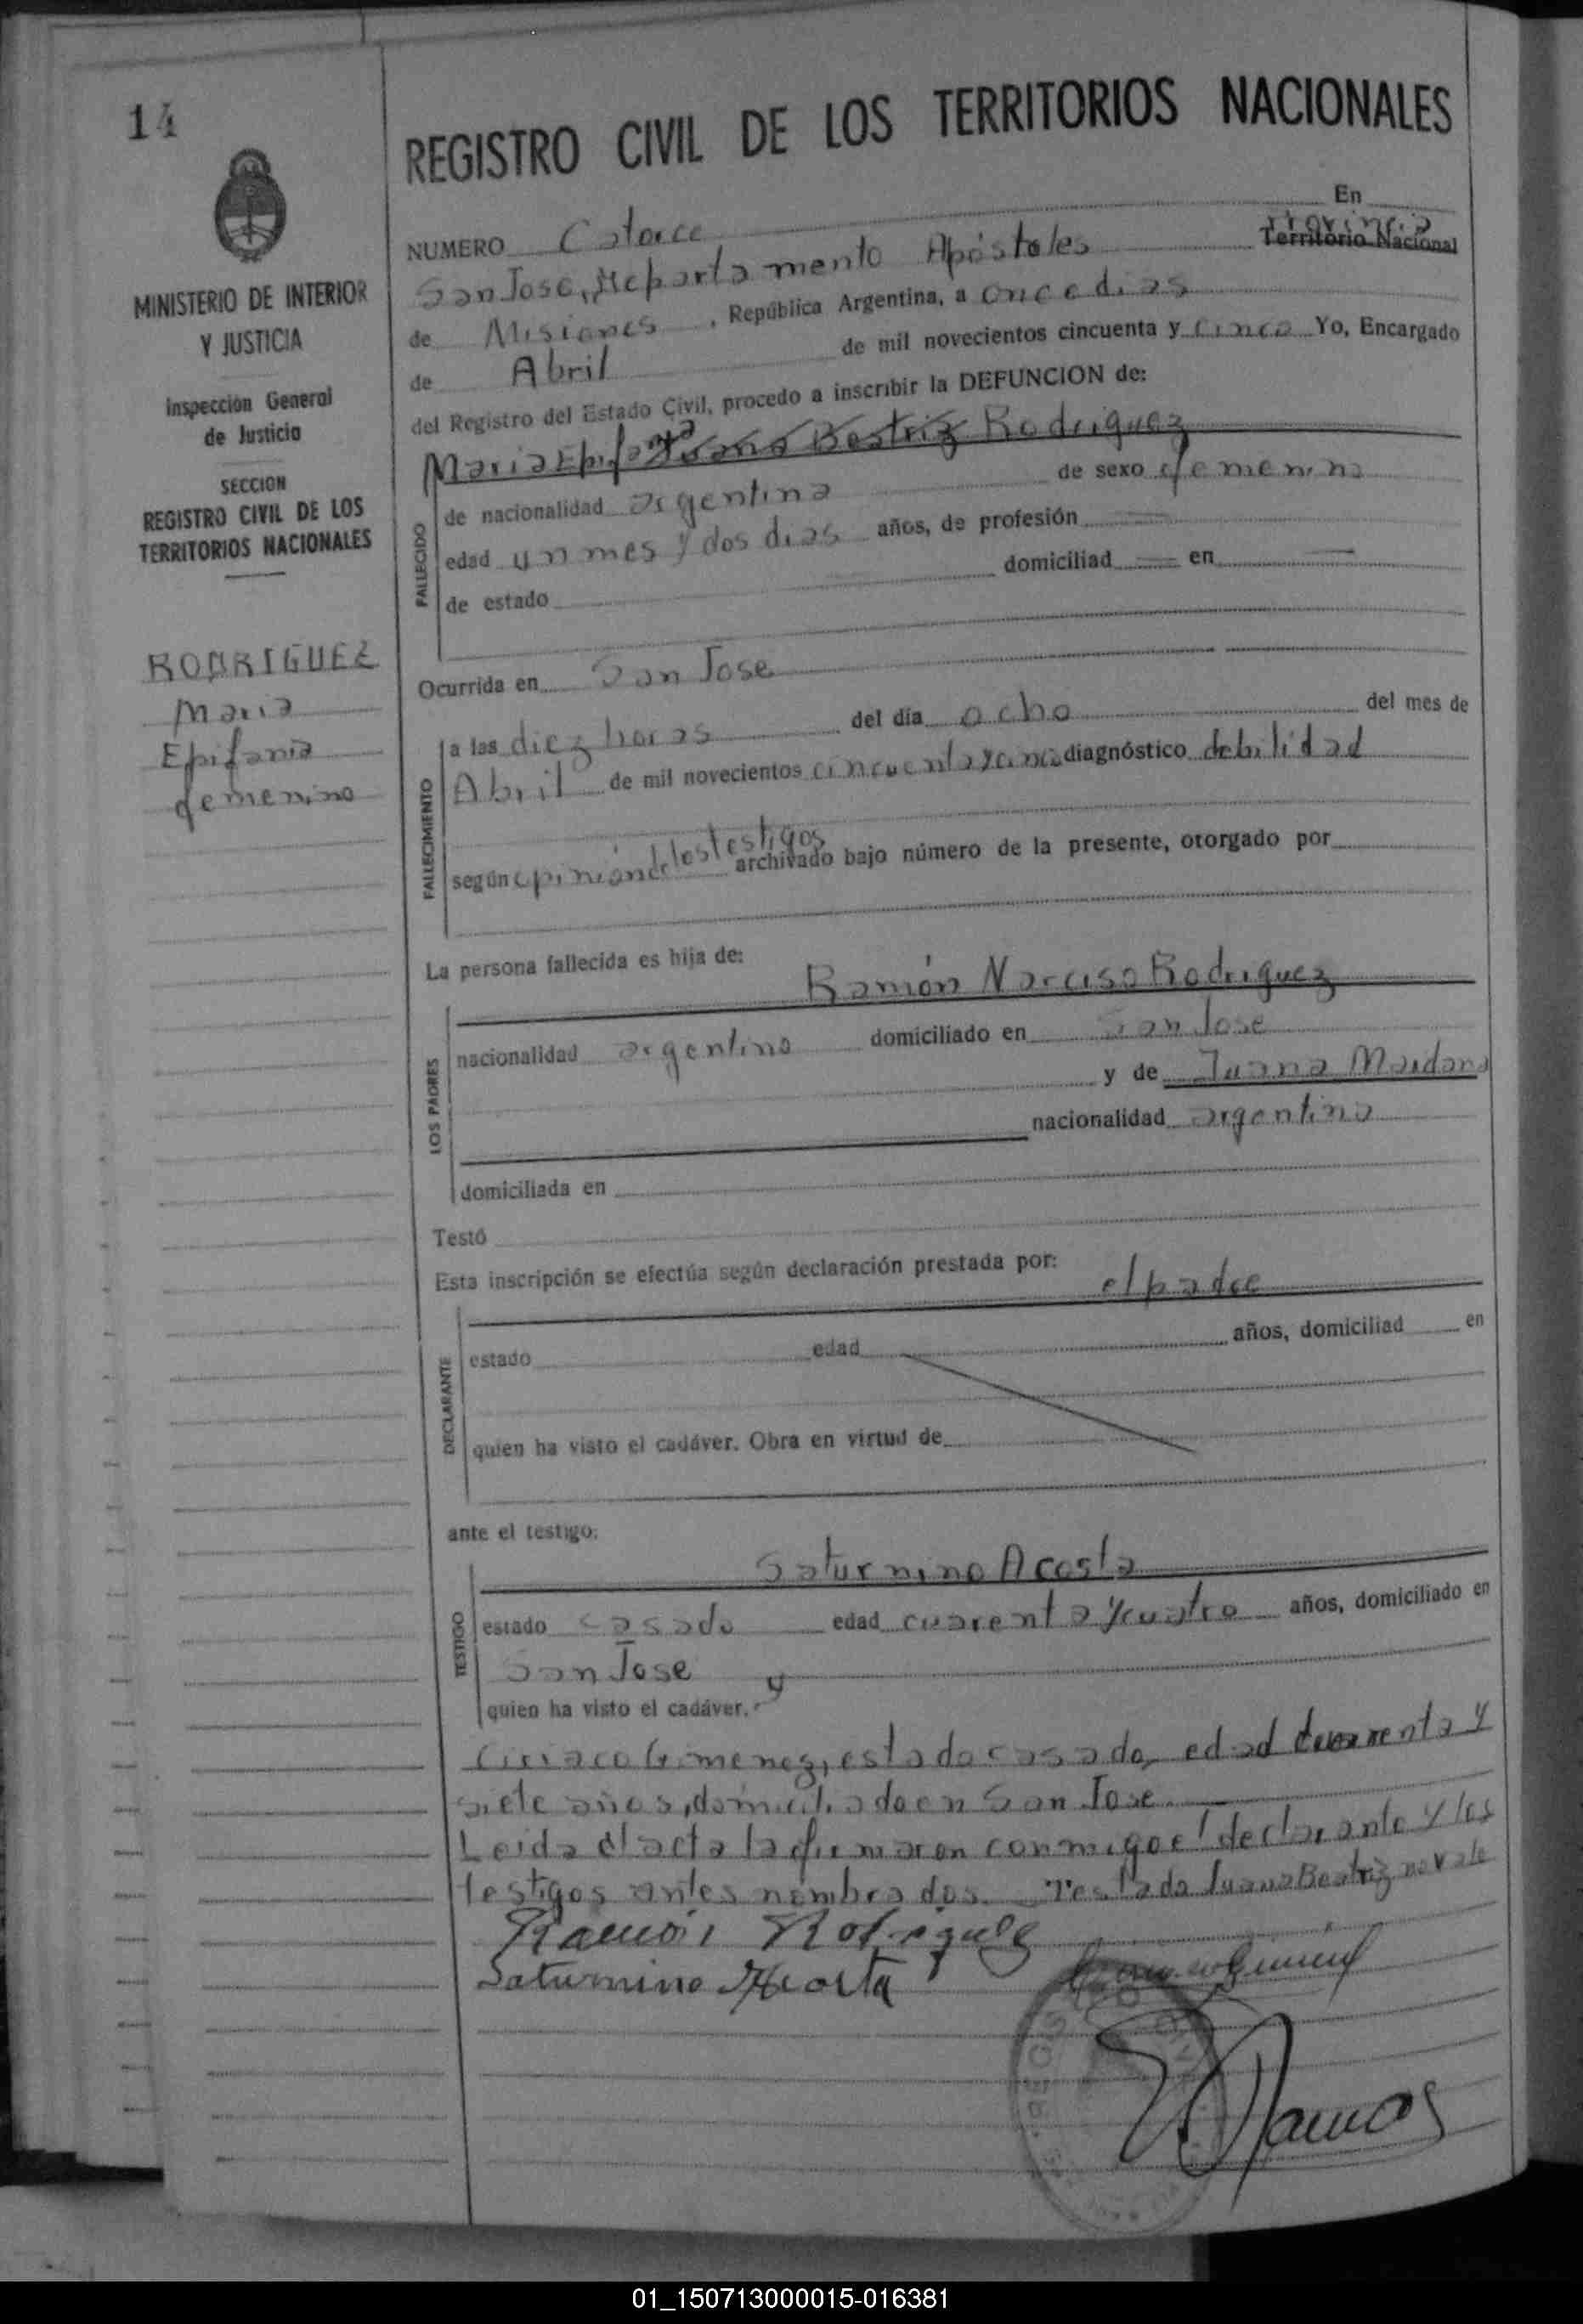 14
MINISTERIO DE INTERIOR
Y JUSTICIA
Inspección General
de Justicia
SECCION
REGISTRO CIVIL DE LOS
TERRITORIOS NACIONALES
RODRIGUEZ
Maria
Epifania
femenino
REGISTRO CIVIL DE LOS TERRITORIOS NACIONALES
NUMERO Catorce En
San Jose, Departamento Apóstoles Provincia Territorio Nacional
de Misiones, República Argentina, a once dias
de Abril de mil novecientos cincuenta y cinco Yo, Encargado
del Registro del Estado Civil, procedo a inscribir la DEFUNCION de:
Maria Epifania Juana Beatriz Rodriguez
FALLECIDO
de nacionalidad argentina de sexo femenino
edad un mes y dos dias años, de profesión
de estado domiciliad en
Ocurrida en San Jose
FALLECIMIENTO
a las diez horas del día ocho del mes de
Abril de mil novecientos cincuenta y cinco diagnóstico debilidad
según opinión de los testigos archivado bajo número de la presente, otorgado por
La persona fallecida es hija de:
Ramón Narciso Rodriguez
LOS PADRES
nacionalidad argentino domiciliado en San Jose
y de Juana Maidana
nacionalidad argentina
domiciliada en
Testó
Esta inscripción se efectúa según declaración prestada por:
el padre
DECLARANTE
estado edad años, domiciliad en
quien ha visto el cadáver. Obra en virtud de
ante el testigo:
Saturnino Acosta
TESTIGO
estado casado edad cuarenta y cuatro años, domiciliado en
San Jose
quien ha visto el cadáver. y
Ciriaco Gimenez, estado casado, edad cuarenta y
siete años, domiciliado en San Jose
Leida el acta la firmaron conmigo el declarante y los
testigos antes nombrados. Testado Juana Beatriz no vale
Ramón Rodriguez
Saturnino Acosta
Ramos
01_150713000015-016381